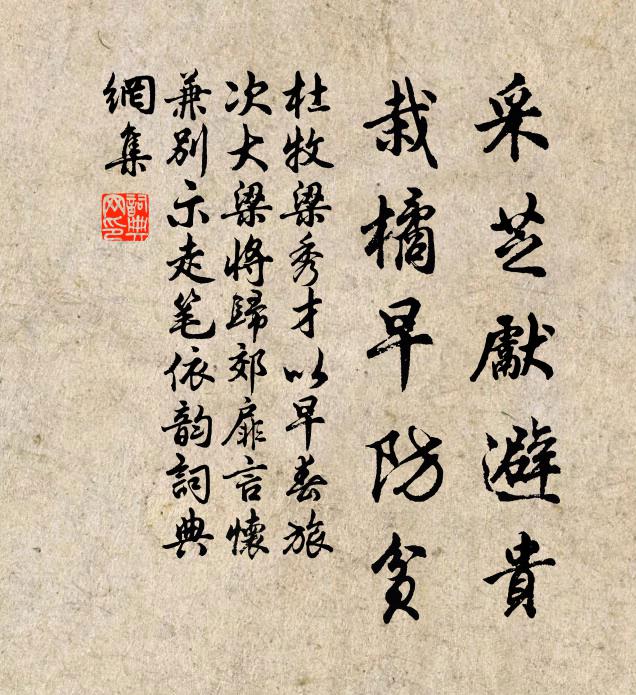 采芝獻避貴
栽橘早防貧
杜牧梁秀才以早春旅
次大梁將歸郊扉言懷
兼別示走笔依韵詞典
網集
詞典
网印